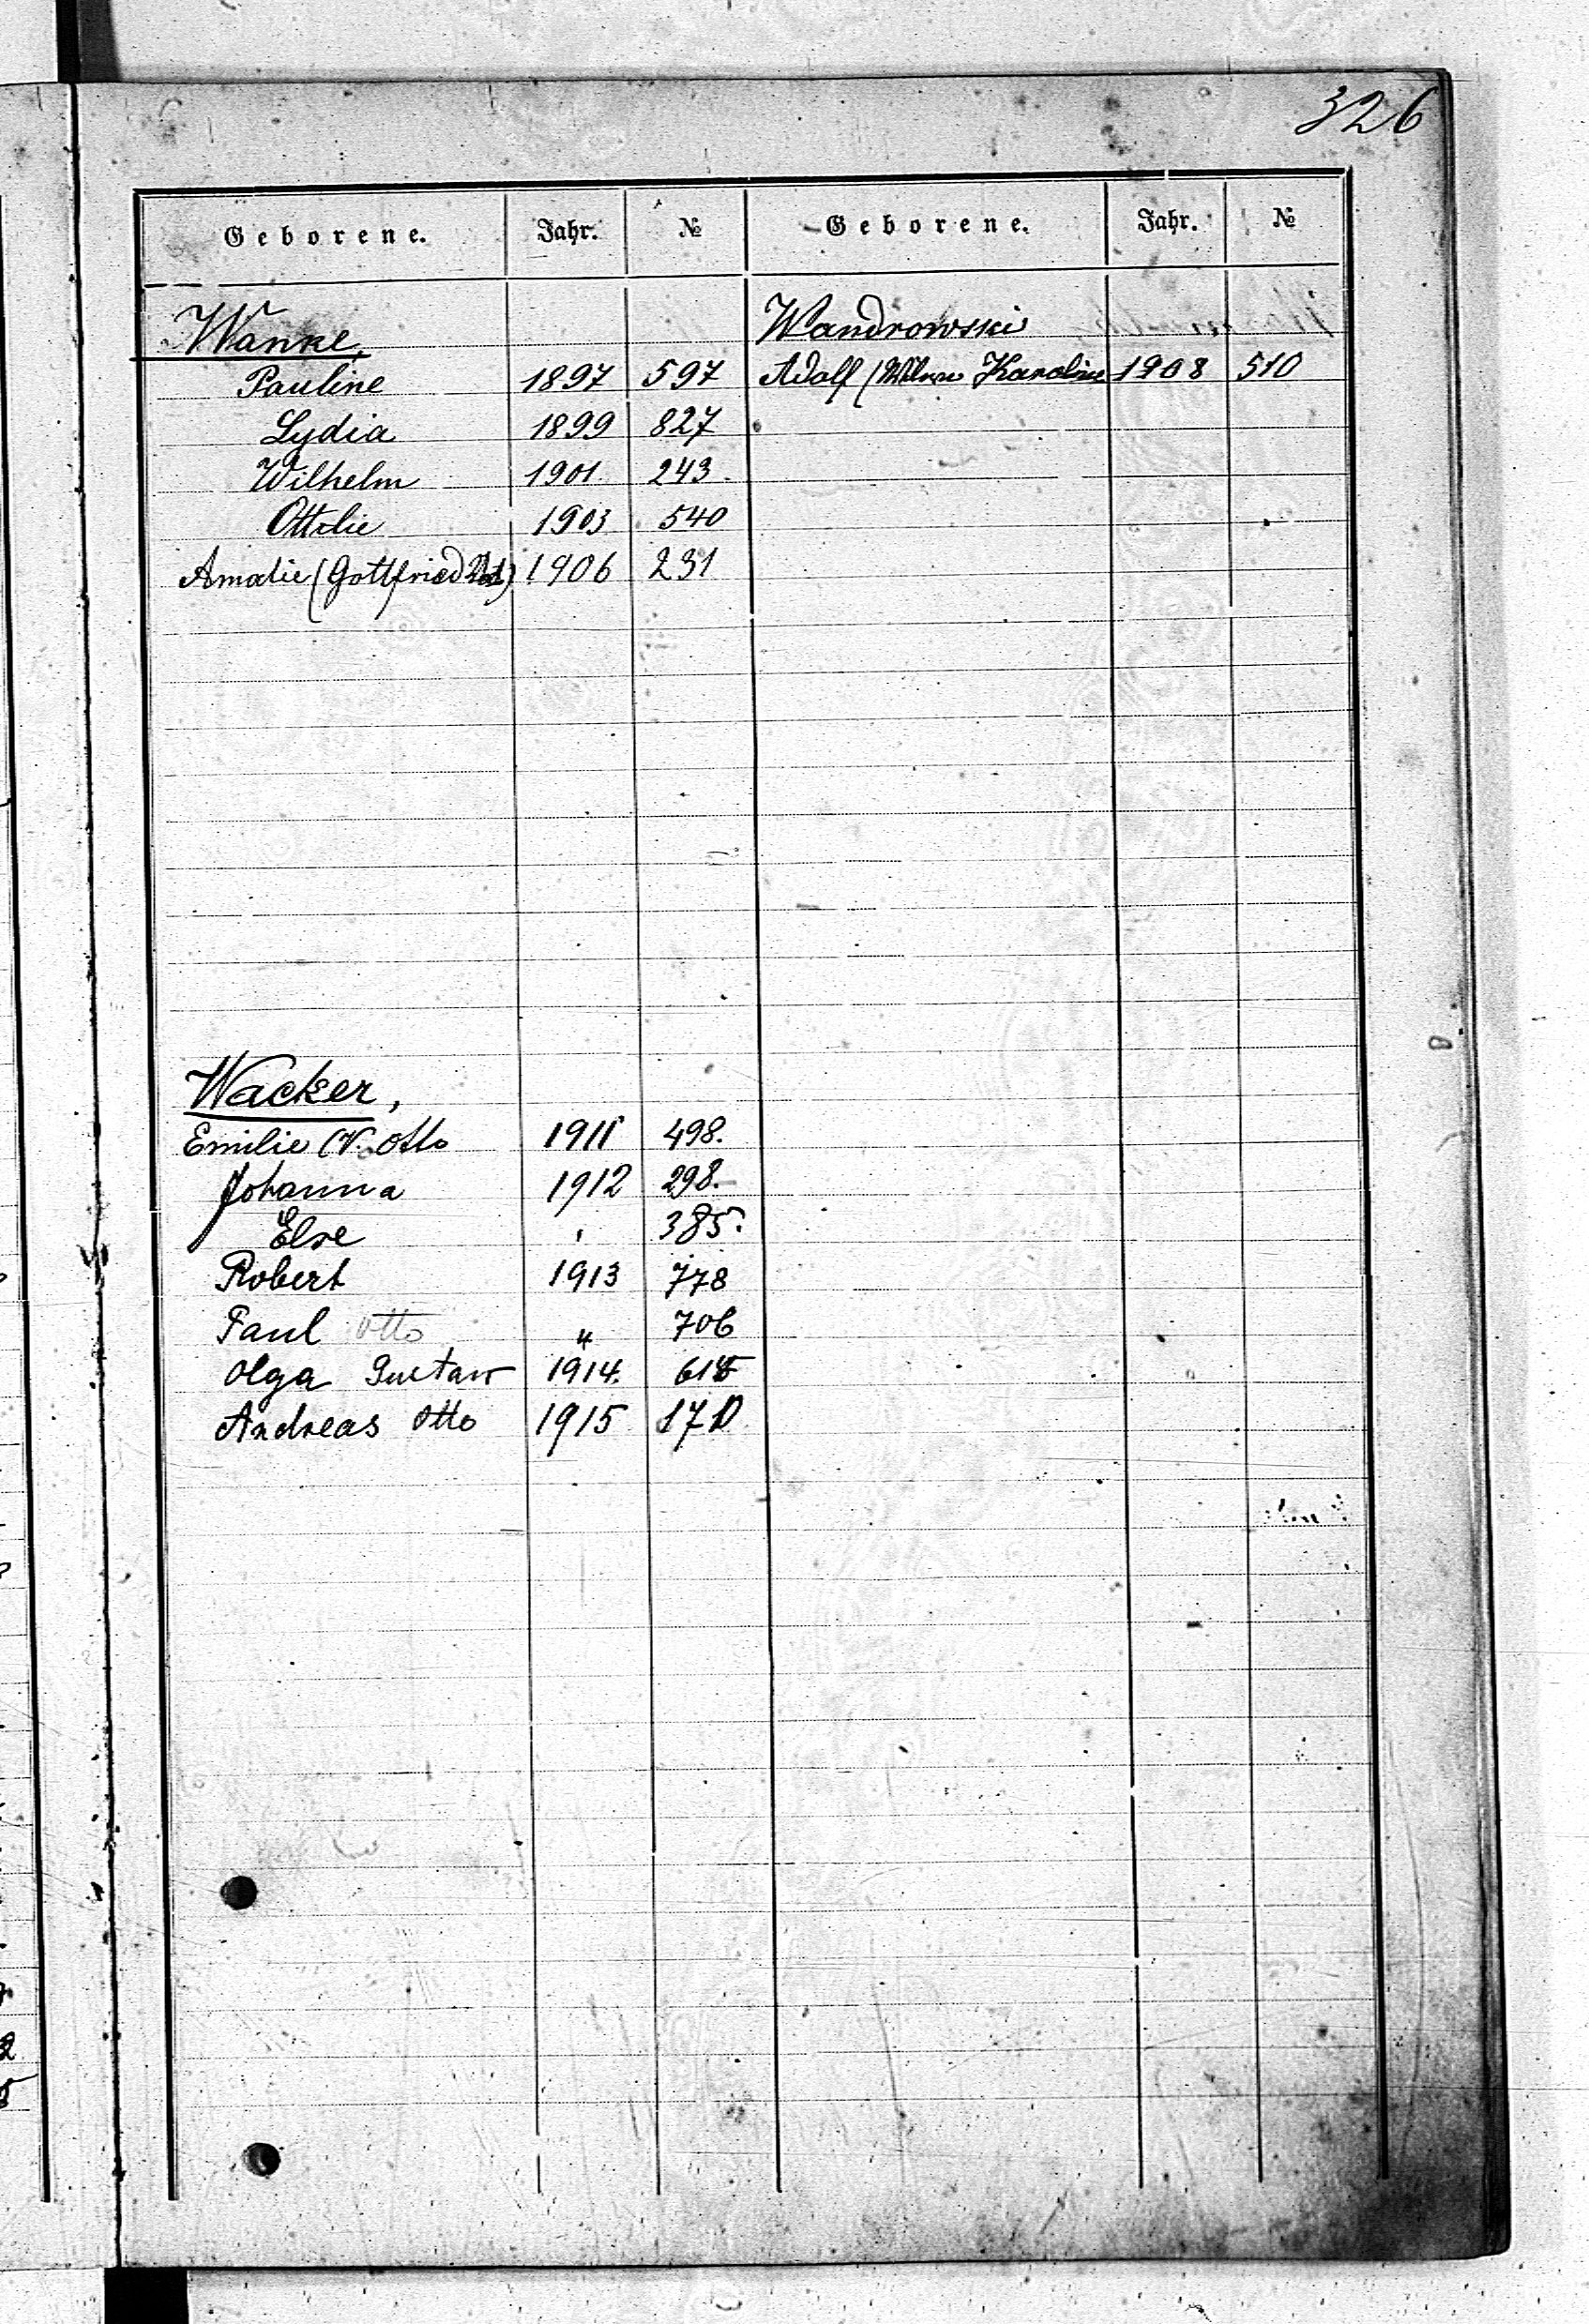 326
Geborene. Jahr. № Geborene. Jahr. №
Wanke, Wandrowski
Pauline 1897 597 Adolf ( Karolin 1908 510
Lydia 1899 827
Wilhelm 1901. 243.
Ottilie 1903 540
Amalie (Gottfried 1906 231
Wacker,
Emilie (V. Otto 1911 498.
Johanna 1912 298.
Else " 385.
Robert 1913 778
Paul Otto " 706
Olga Gustav 1914. 615
Andreas Otto 1915 170